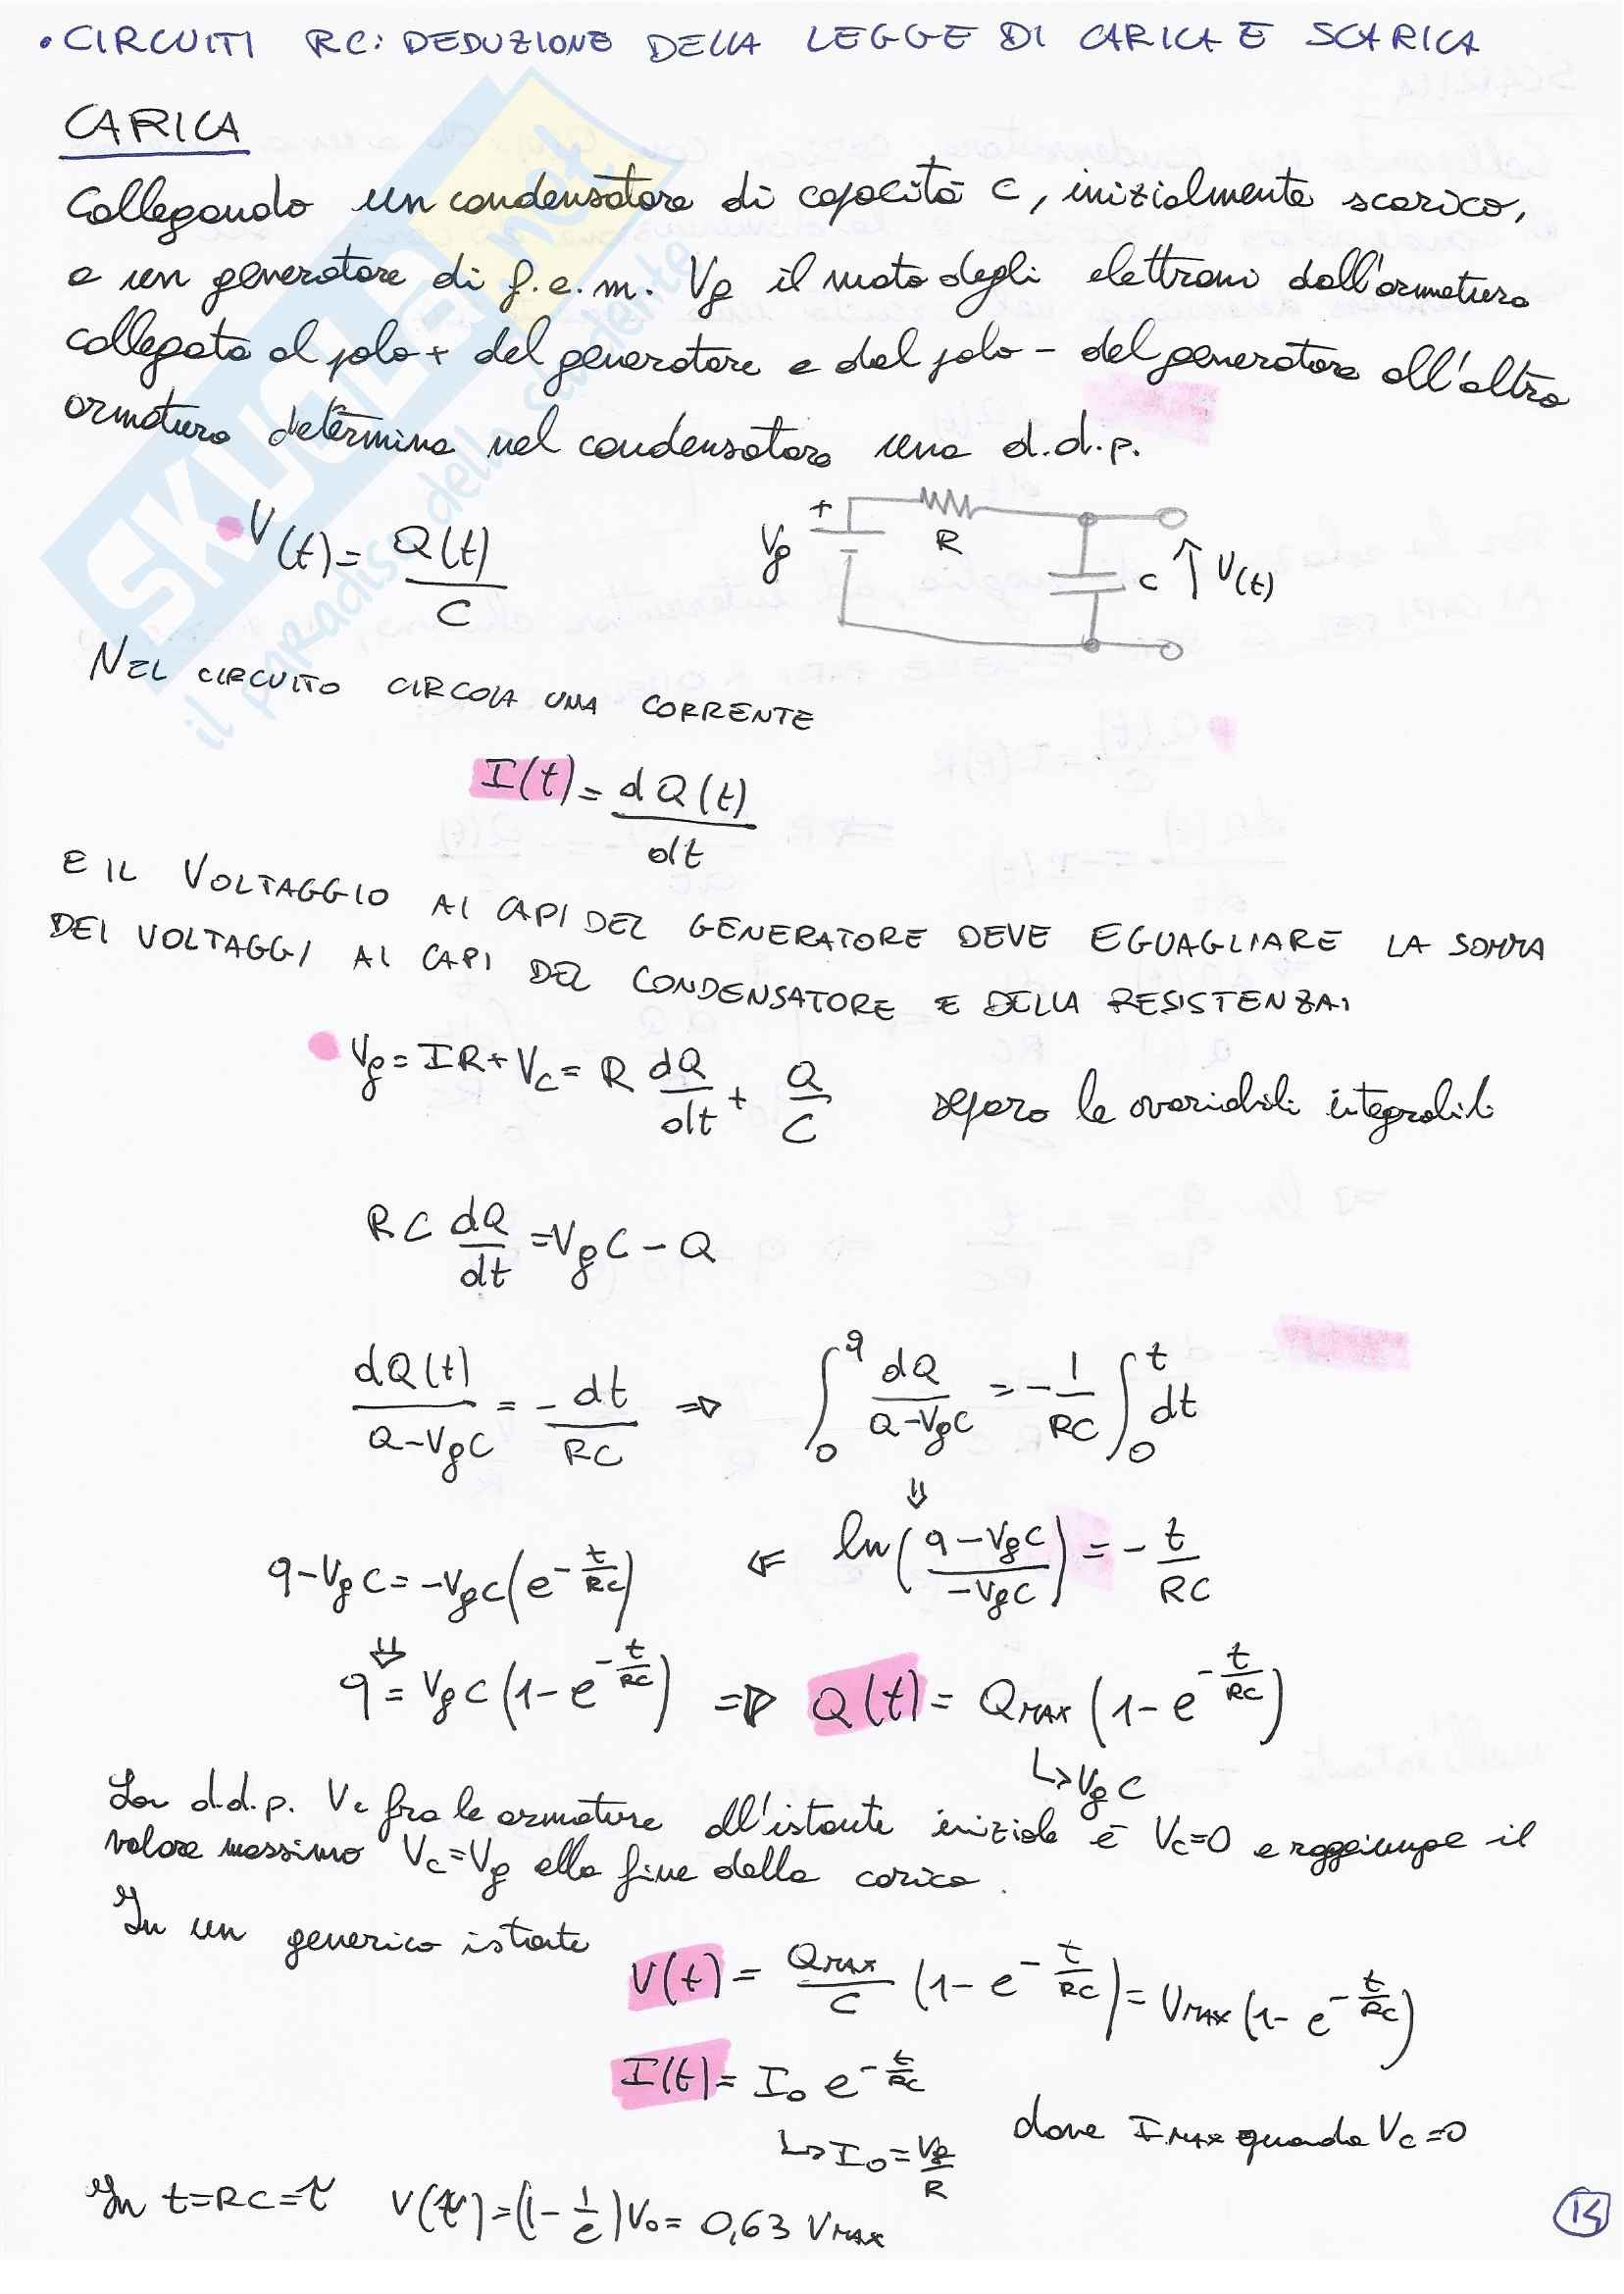 • CIRCUITI RC: DEDUZIONE DELLA LEGGE DI CARICA E SCARICA
CARICA
Collegando un condensatore di capacità C, inizialmente scarico,
a un generatore di f.e.m. Vg il moto degli elettroni dall'armatura
collegata al polo + del generatore e dal polo - del generatore all'altra
armatura determina nel condensatore una d.d.p.
V(t) = Q(t)/C
+ Vg R C ↑ V(t)
NEL CIRCUITO CIRCOLA UNA CORRENTE
I(t) = dQ(t)/dt
E IL VOLTAGGIO AI CAPI DEL GENERATORE DEVE EGUAGLIARE LA SOMMA
DEI VOLTAGGI AI CAPI DEL CONDENSATORE E DELLA RESISTENZA:
Vg = IR + Vc = R dQ/dt + Q/C separo le variabili integrabili
RC dQ/dt = VgC - Q
dQ(t)/(Q-VgC) = - dt/RC ⇒ ∫₀^q dQ/(Q-VgC) = - 1/RC ∫₀^t dt
⇓
q-VgC = -VgC(e^(-t/RC)) ⇐ ln((q-VgC)/(-VgC)) = - t/RC
⇓
q = VgC(1-e^(-t/RC)) ⇒ Q(t) = QMAX(1-e^(-t/RC))
↳ VgC
La d.d.p. Vc fra le armature all'istante iniziale è Vc=0 e raggiunge il
valore massimo Vc=Vg alla fine della carica.
In un generico istante
V(t) = QMAX/C (1-e^(-t/RC)) = VMAX(1-e^(-t/RC))
I(t) = I₀ e^(-t/RC)
↳ I₀ = Vg/R dove IMAX quando Vc=0
In t=RC=τ V(τ)=(1-1/e)V₀ = 0,63 VMAX
SKUOLA.net
il paradiso dello studente